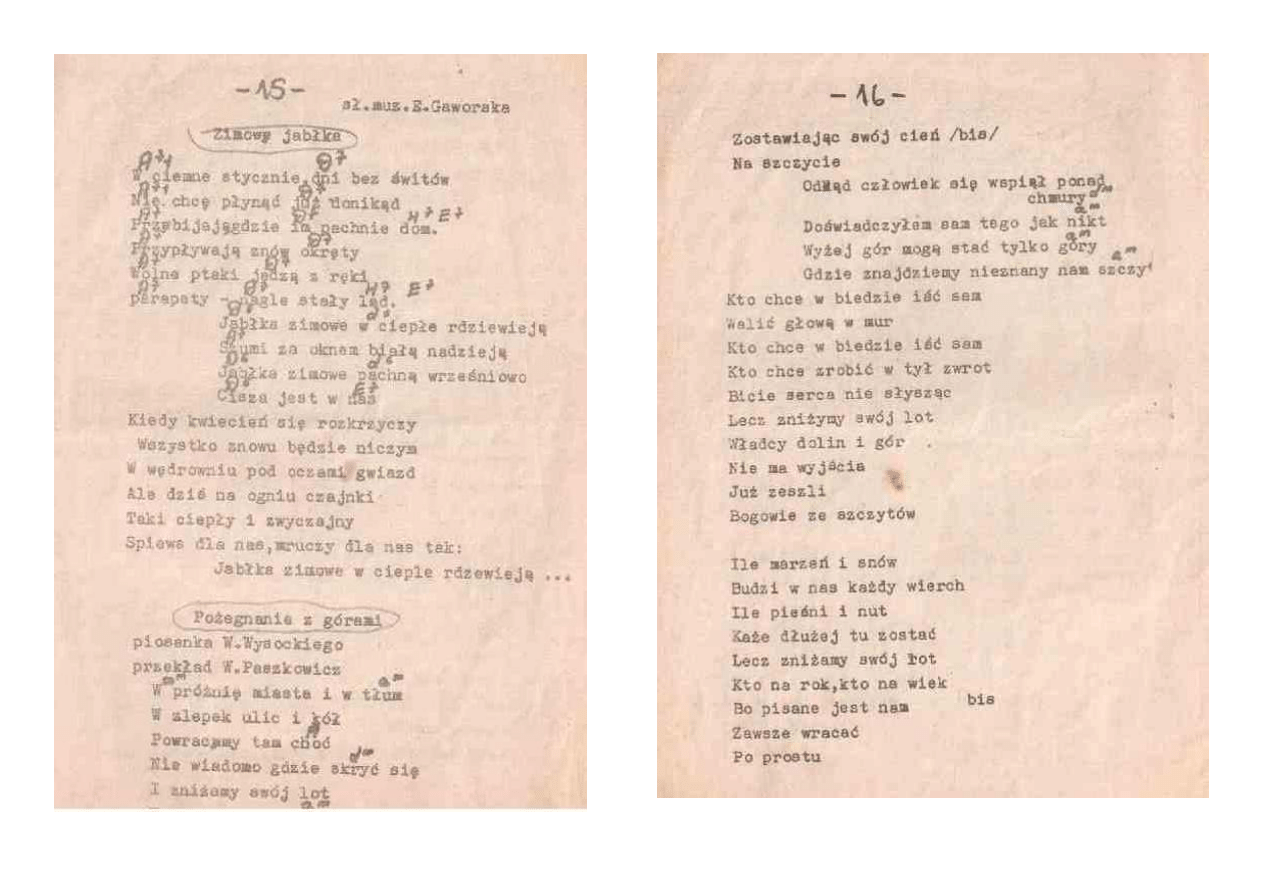 -15-
sł.muz.E.Gaworska
Zimowe jabłka
A7+ D7
W ciemne stycznie dni bez świtów
A7+ D7
Nie chcę płynąć już donikąd
A7 D7 H7 E7
Przebijają gdzie im pachnie dom.
A7 D7
Przypływają znów okręty
A7 D7
Wolne ptaki jedzą z ręki
A7 D7 H7 E7
parapety - nagle stały ląd.
D7
Jabłka zimowe w cieple rdziewieją
Szumi za oknem białą nadzieją
Jabłka zimowe pachną wrześniowo
E7
Cisza jest w nas
Kiedy kwiecień się rozkrzyczy
Wszystko znowu będzie niczym
W wędrowniu pod oczami gwiazd
Ale dziś na ogniu czajnki
Taki ciepły i zwyczajny
Spiewa dla nas,mruczy dla nas tak:
Jabłka zimowe w cieple rdzewieją ...
Pożegnanie z górami
piosenka W.Wysockiego
przekład W.Paszkowicz
am am
W próżnię miasta i w tłum
W zlepek ulic i kół
A
Powracamy tam choć
dm
Nie wiadomo gdzie skryć się
I zniżamy swój lot
am
-16-
Zostawiając swój cień /bis/
Na szczycie
Odkąd człowiek się wspiął ponad
chmury dm
am
Doświadczyłem sam tego jak nikt
am
Wyżej gór mogą stać tylko góry
am
Gdzie znajdziemy nieznany nam szczyt
Kto chce w biedzie iść sam
Walić głową w mur
Kto chce w biedzie iść sam
Kto chce zrobić w tył zwrot
Bicie serca nie słysząc
Lecz zniżymy swój lot
Władcy dolin i gór
Nie ma wyjścia
Już zeszli
Bogowie ze szczytów
Ile marzeń i snów
Budzi w nas każdy wierch
Ile pieśni i nut
Każe dłużej tu zostać
Lecz zniżamy swój lot
Kto na rok,kto na wiek
Bo pisane jest nam bis
Zawsze wracać
Po prostu